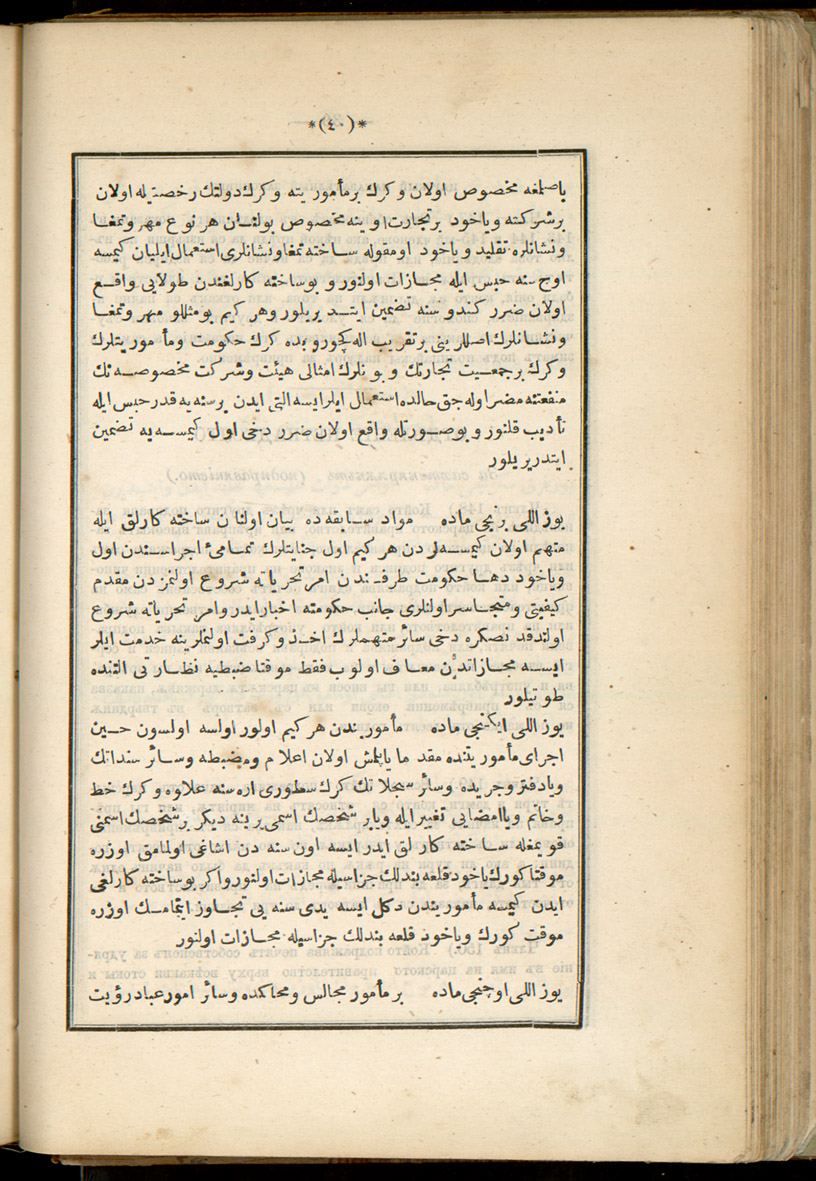 *(٤٠)*
یاصلمغه مخصوص اولان وكرك برمأموریته وكرك دولتك رخصتیله اولان
برشركته ویاخود برتجارت اوینه مخصوص بولنان هر نوع مهر وتمغا
ونشانلره تقلید ویاخود اومقوله ساخته تمغا ونشانلری استعمال ایلیان كیمسه
اوچ سنه حبس ایله مجازات اولنور و بوساخته كارلغندن طولایی واقع
اولان ضرر كندوسنه تضمین ایتدیریلور وهر كیم بومثللو مهر وتمغا
ونشانلرك اصللرینی برتقریب اله كچوروبده كرك حكومت ومأموریتلرك
وكرك برجمعیت تجارتك و بونلرك امثالی هیئت وشركت مخصوصه نك
منفعتنه مضر اوله جق حالده استعمال ایلرایسه التی ایدن برسنه یه قدر حبس ایله
تأدیب قلنور و بوصورتله واقع اولان ضرر دخی اول كیمسه یه تضمین
ایتدریریلور
یوز اللی برنجی ماده مواد سابقه ده بیان اولنان ساخته كارلق ایله
متهم اولان كیمسه لردن هر كیم اول جنایتلرك تمامیٔ اجراسندن اول
ویاخود دها حكومت طرفندن امر تحریاته شروع اولنمزدن مقدم
كیفیتی ومتجاسر اولنلری جانب حكومته اخبار ایدر وامر تحریاته شروع
اولندقدنصكره دخی سائر متهملرك اخذ وكرفت اولنملرینه خدمت ایلر
ایسه مجازاتدن معاف اولوب فقط موقتا ضبطیه نظارتی التنده
طوتیلور
یوز اللی ایكنجی ماده مأموریندن هر كیم اولور اولسه اولسون حین
اجرای مأموریتنده مقدما یاپلمش اولان اعلام ومضبطه وسائر سنداتك
ویادفتر وجریده وسائر سجلاتك كرك سطوری اره سنه علاوه وكرك خط
وخاتم ویاامضایی تغییر ایله ویابر شخصك اسمی یرینه دیكر برشخصك اسمنی
قویمغله ساخته كارلق ایدر ایسه اون سنه دن اشاغی اولمامق اوزره
موقتا كورك یاخود قلعه بندلك جزاسیله مجازات اولنور واكر بوساخته كارلغی
ایدن كیمسه مأموریندن دكل ایسه یدی سنه یی تجاوز ایتمامك اوزره
موقت كورك ویاخود قلعه بندلك جزاسیله مجازات اولنور
یوز اللی اوچنجی ماده برمأمور مجالس ومحاكمده وسائر امور عباد رؤیت